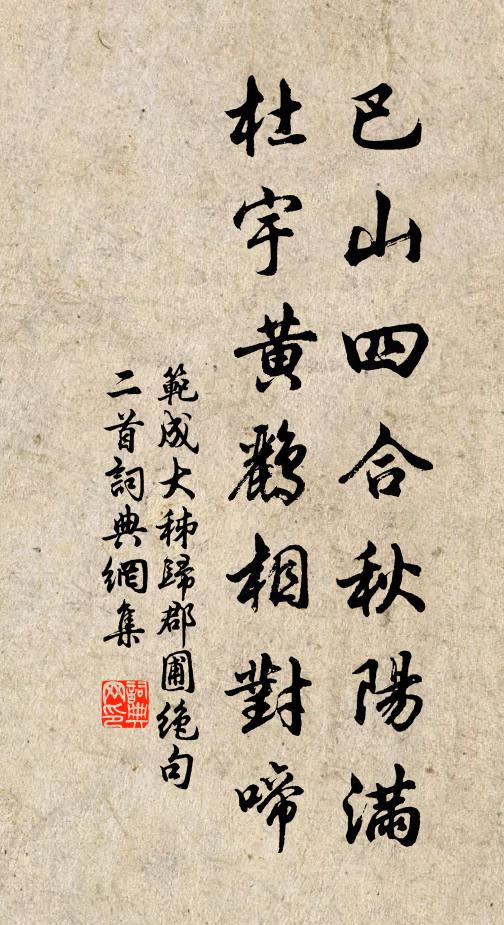 巴山四合秋陽滿
杜宇黃鸝相對啼
範成大秭歸郡圃絶句
二首詞典網集
詞典
网印